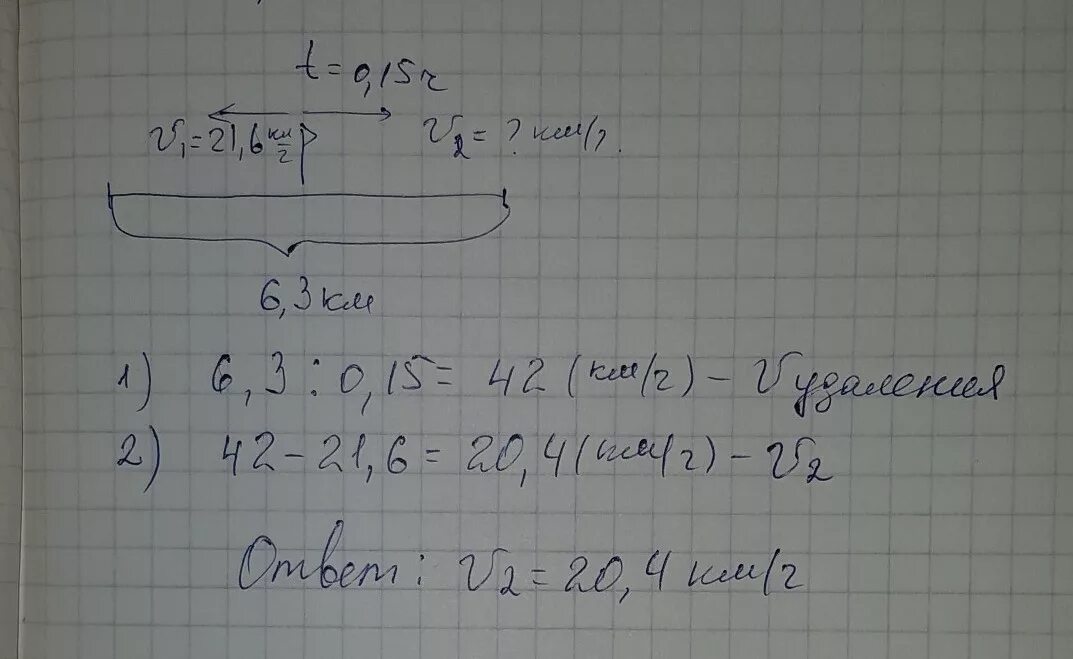 t = 0,15 ч
v₁ = 21,6 км/ч
v₂ = ? км/ч.
6,3 км
1) 6,3 : 0,15 = 42 (км/ч) – v удаления
2) 42 – 21,6 = 20,4 (км/ч) – v₂
Ответ: v₂ = 20,4 км/ч